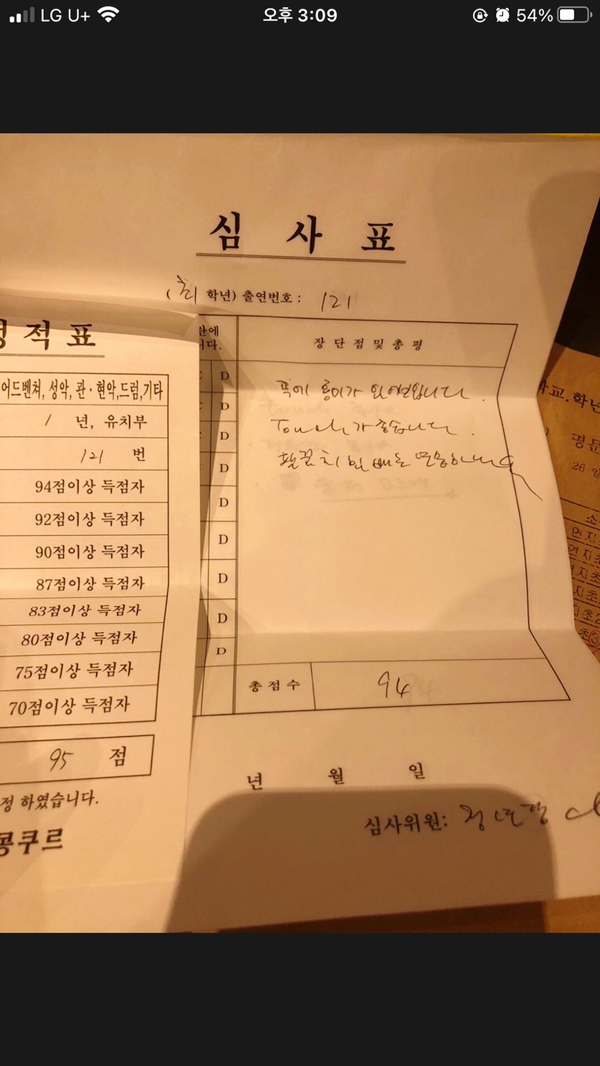 LG U+ 오후 3:09 54%
심 사 표
학년) 출연번호 : 121
적 표
산에
니다.
장 단 점 및 총 평
어드벤쳐, 성악, 관·현악,드럼,기타
D
D
1 년, 유치부
Touch가 좋습니다.
D
121 번
D
94점이상 득점자
D
92점이상 득점자
D
90점이상 득점자
D
87점이상 득점자
D
83점이상 득점자
D
80점이상 득점자
75점이상 득점자
총 점 수 94
70점이상 득점자
95 점
년 월 일
정 하였습니다.
심사위원:
콩쿠르
교.학년
명문
26